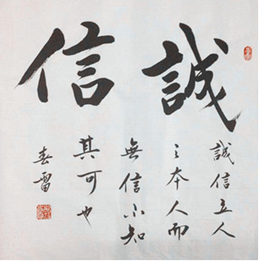 誠信
誠信立人
之本人而
無信不知
其可也
春雷